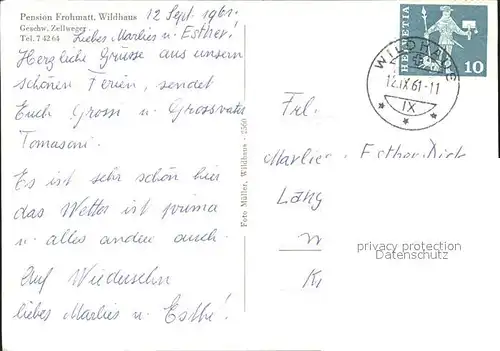 Pension Frohmatt, Wildhaus
Geschw. Zellweger
Tel. 7 42 64
12 Sept. 1961.
Liebes Marlies u. Esther!
Herzliche Grüsse aus unsern
schönen Ferien, sendet
Euch Grosi u. Grossvater
Tomasoni.
Es ist sehr schön hier
das Wetter ist prima
u. alles andere auch.
Auf Wiedersehn
liebes Marlies u. Esthe!
Foto Müller, Wildhaus - 2560
HELVETIA
10
WILDHAUS
12.IX.61-11
IX
Frl.
Marlies Esther
Lang
privacy protection
Datenschutz